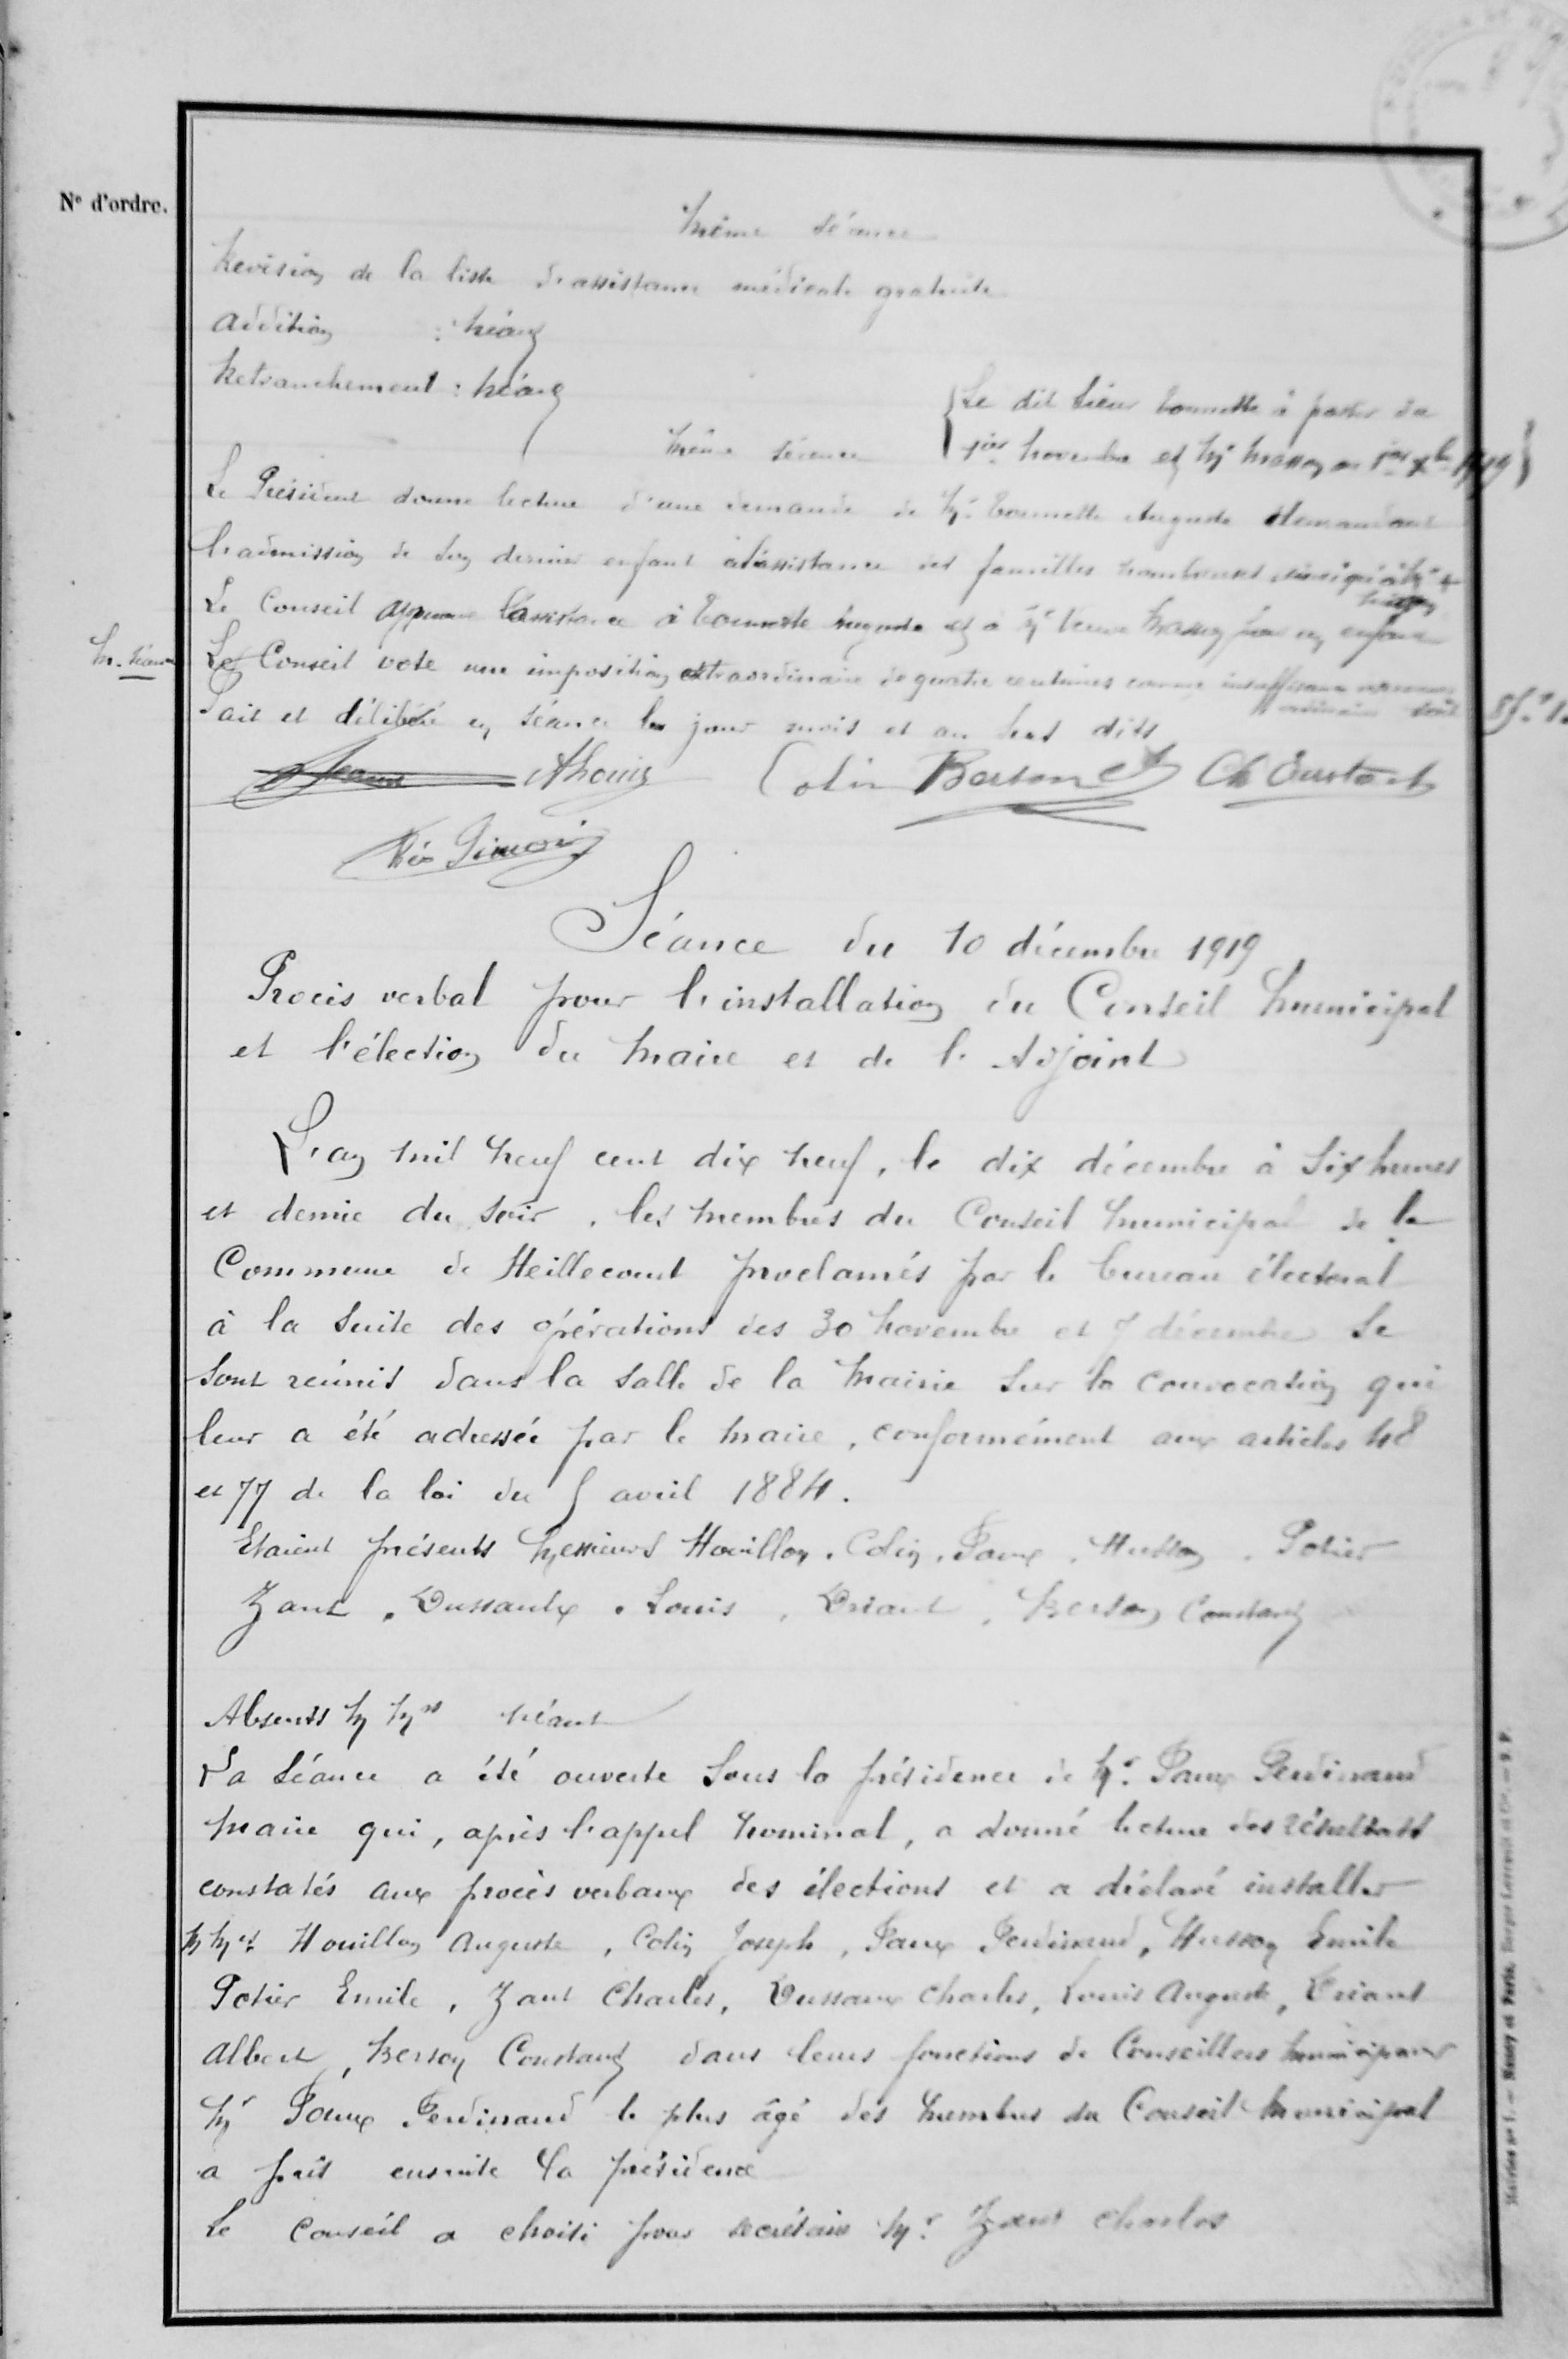 N° d'ordre.
Même séance
Revision de la liste d'assistance médicale gratuite
Addition : Néant
Retranchement : Néant
Le dit sieur Tournette à partir du
Même séance
1ier Novembre et Mr Masson au 1ier Xbre 1919
Le Président donne lecture d'une demande de Mr. Tournette Auguste demandant
l'admission de son dernier enfant à l'assistance des familles nombreuses
Le Conseil approuve l'assistance à Tournette Auguste et à Veuve Masson pour un enfant
M. séance
Le Conseil vote une imposition extraordinaire de quatre centimes comme insuffisance revenus
ordinaires soit
Fait et délibéré en séance les jour mois et an sus dits
Colin Berson Ct Ch Eustach
Séance du 10 décembre 1919
Procès verbal pour l'installation du Conseil Municipal
et l'élection du Maire et de l'Adjoint
L'an mil neuf cent dix neuf, le dix décembre à six heures
et demie du soir, les membres du Conseil Municipal de la
Commune de Heillecourt proclamés par le bureau électoral
à la suite des opérations des 30 Novembre et 7 décembre se
sont réunis dans la salle de la Mairie sur la convocation qui
leur a été adressée par le Maire, conformément aux articles 48
et 77 de la loi du 5 avril 1884.
Etaient présents Messieurs Houillon, Colin, Paux, Husson, Potier
Zant, Dussaulx, Louis, Briant, Berson Constant
Absents M Mrs néant
La Séance a été ouverte sous la présidence de Mr. Paux Ferdinand
Maire qui, après l'appel nominal, a donné lecture des résultats
constatés aux procès verbaux des élections et a déclaré installer
M Mrs Houillon Auguste, Colin Joseph, Paux Ferdinand, Husson Emile
Potier Emile, Zant Charles, Dussaux Charles, Louis Auguste, Briant
Albert, Berson Constant dans leurs fonctions de Conseillers Municipaux
Mr Paux Ferdinand le plus âgé des membres du Conseil Municipal
a pris ensuite la présidence
Le Conseil a choisi pour secrétaire Mr. Zant Charles
Mairies n° 1. — Nancy et Paris, Berger-Levrault et Cie.